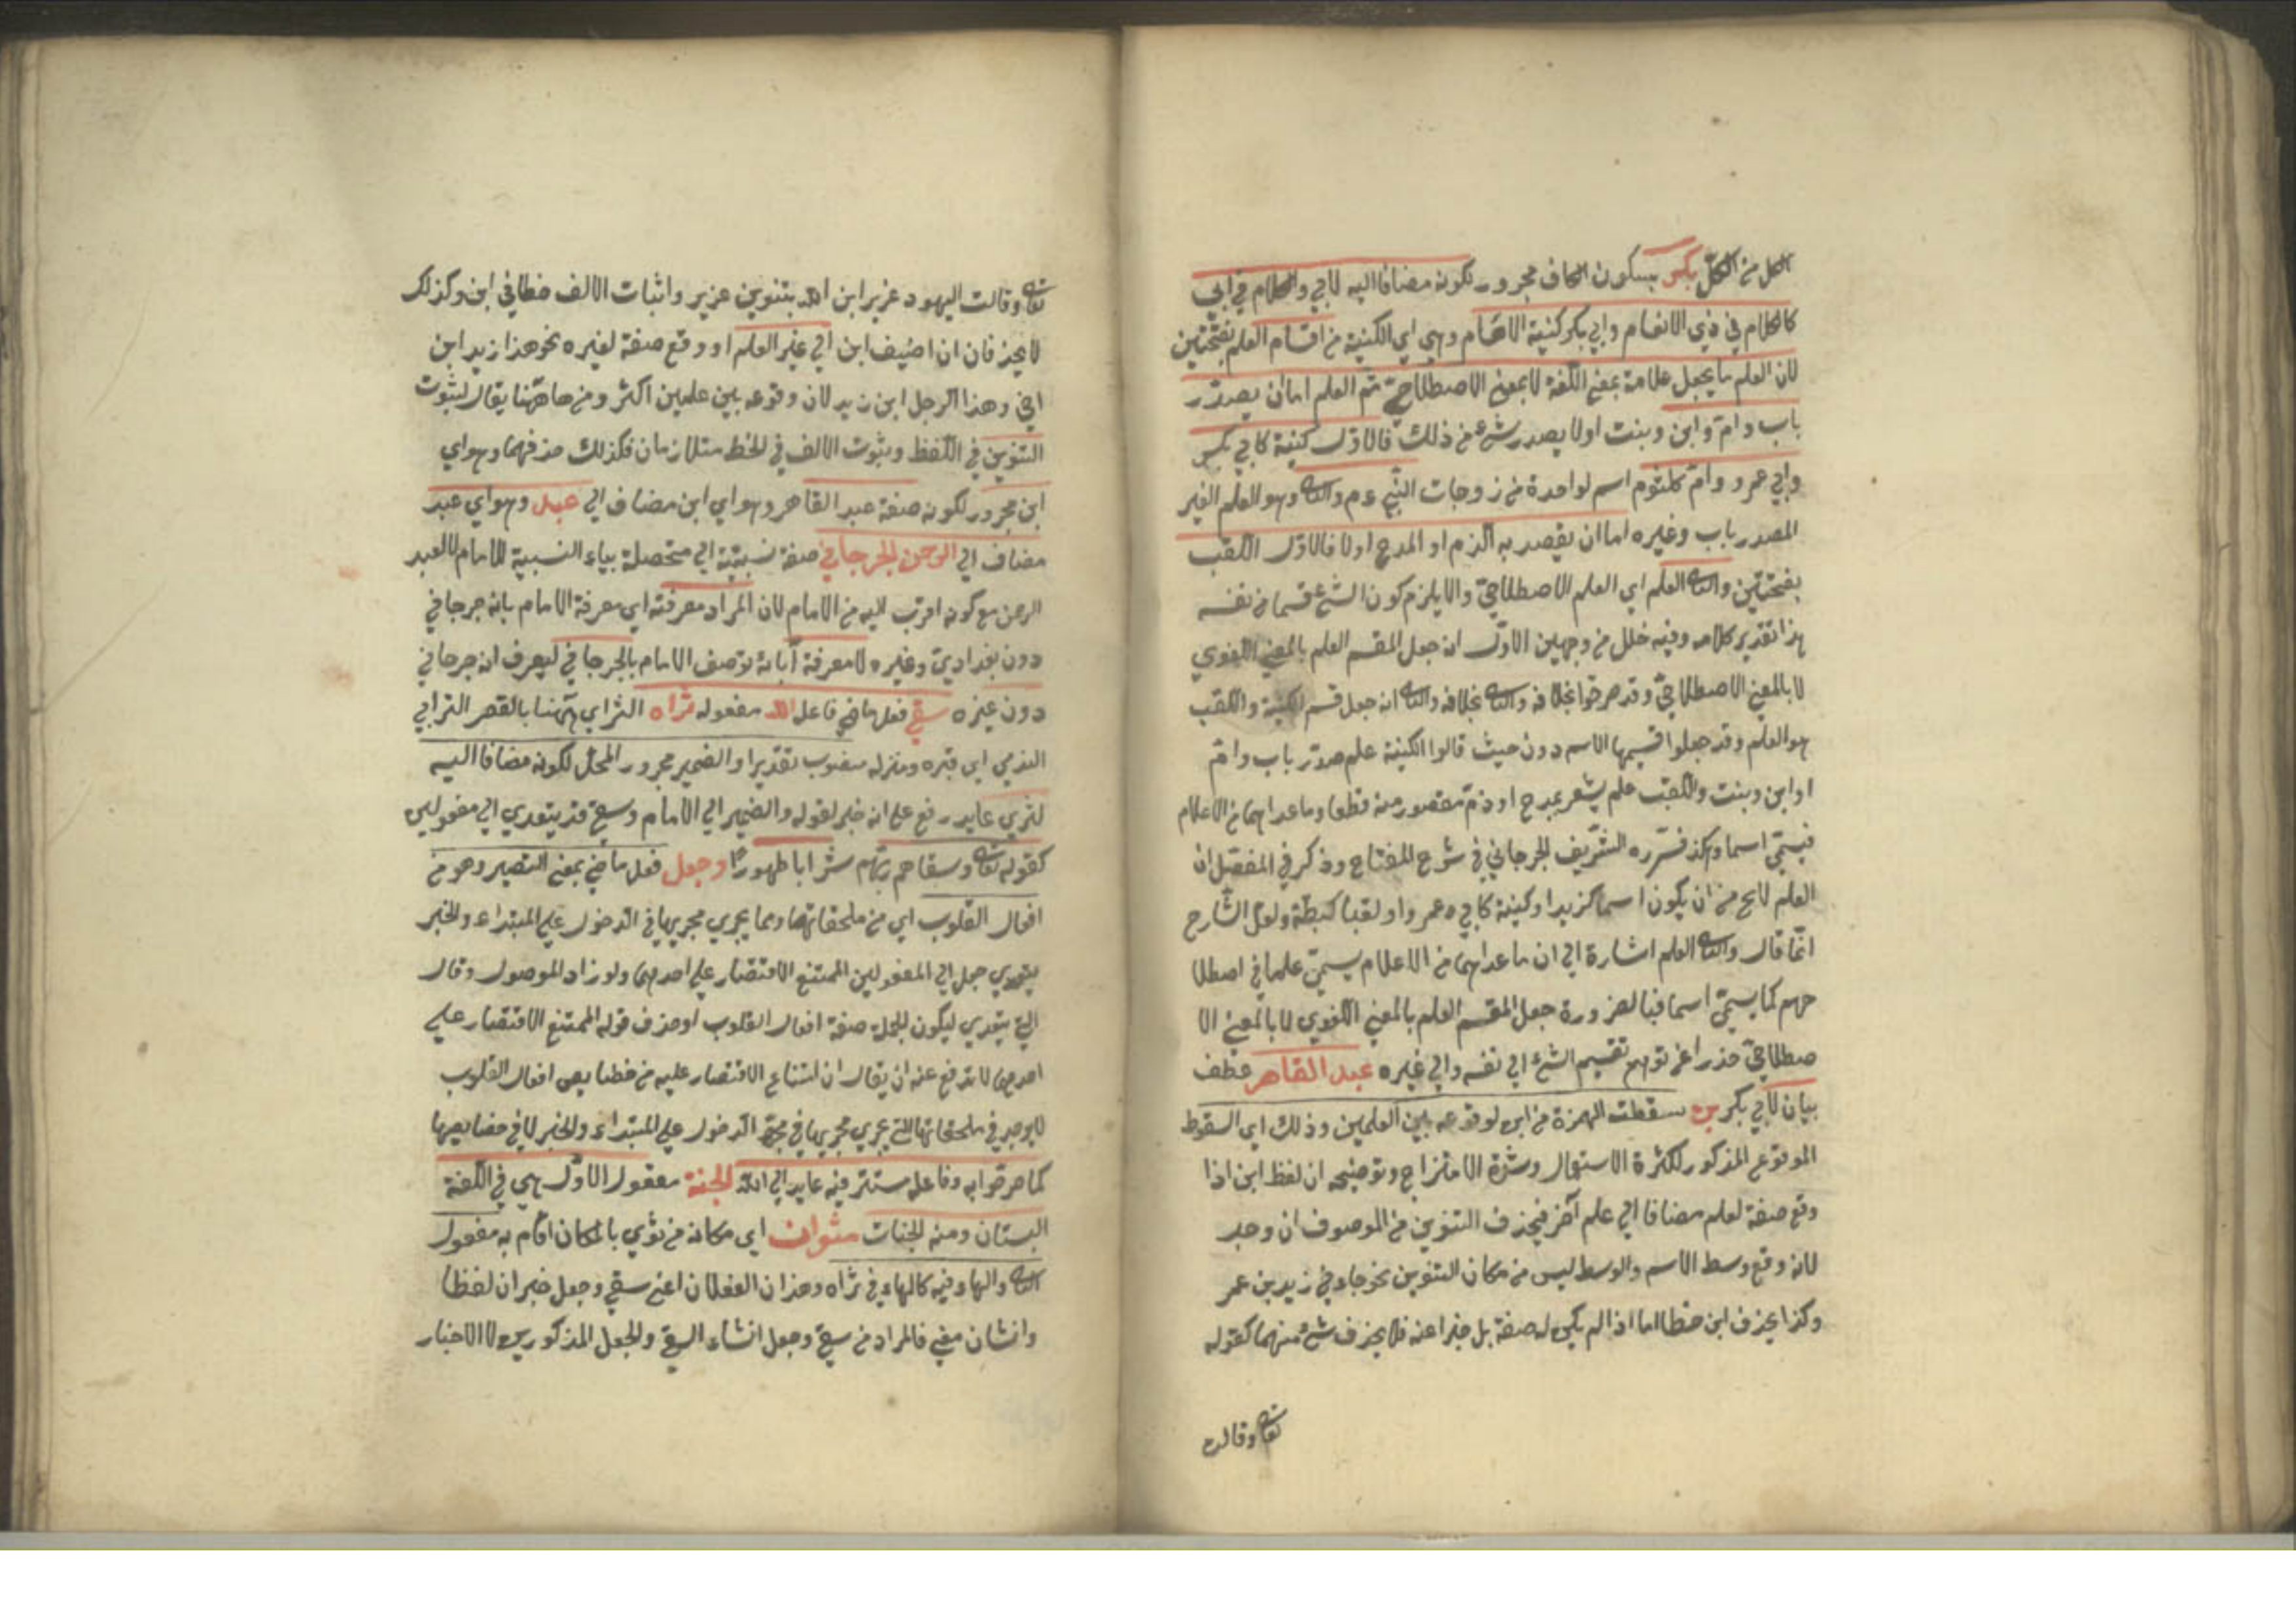 الكل من الكل بكر بسكون الكاف مجرور لكونه مضافا اليه لابي والكلام في ابي
كالكلام في ذي الانعام وابي بكر كنية الامام وهي اي الكنية من اقسام العلم بفتحتين
لان العلم ما يجعل علامة بمعنى اللغة لا بمعنى الاصطلاحي ثم العلم اما ان يصدر
باب وام وابن وبنت اولا يصدر بشئ من ذلك فالاول كنية كابي بكر
وابي عمرو وام كلثوم اسم لواحدة من زوجات النبي عم والثا وهو العلم الغير
المصدر باب وغيره اما ان يقصد به الذم او المدح اولا فالاول اللقب
بفتحتين والثا العلم اي العلم الاصطلاحي والا يلزم كون الشئ قسما من نفسه
هذا تقدير كلامه وفيه خلل من وجهين الاول انه جعل المقسم العلم بالمعنى اللغوي
لا بالمعنى الاصطلاحي وقد صرحوا بخلافه والثا بخلافه والثا انه جعل قسم الكنية واللقب
هو العلم وقد جعلوا قسيمها الاسم دون حيث قالوا الكنية علم صدر باب وام
او ابن وبنت واللقب علم يشعر بمدح او ذم مقصور منه قطعا وما عداهما من الاعلام
فيسمى اسما وهكذا قرره الشريف الجرجاني في شرح المفتاح وذكر في المفصل ان
العلم لا يخ من ان يكون اسما كزيد او كنية كابي عمرو او لقبا كبطة ولعل الشارح
انما قال والثا العلم اشارة الى ان ما عداهما من الاعلام يسمى علما في اصطلا
حهم كما يسمى اسما فبالضرورة جعل المقسم العلم بالمعنى اللغوي لا بالمعنى الا
صطلاحي حذرا عن توهم تقسيم الشئ الى نفسه والى غيره عبد القاهر عطف
بيان لابي بكر بن سقطت الهمزة من ابن لوقوعه بين العلمين وذلك اي السقوط
الموقوع المذكور لكثرة الاستعمال وشدة الامتزاج وتوضيحه ان لفظ ابن اذا
وقع صفة لعلم مضافا الى علم آخر فيحذف التنوين من الموصوف ان وجد
لانه وقع وسط الاسم والوسط ليس من مكان التنوين نحو جاءني زيد بن عمر
وكذا يحذف ابن خطا اما اذا لم يكن له صفة بل خبرا عنه فلا يحذف شئ منهما كقوله
تعا وقالت
تعا وقالت اليهود عزير ابن الله بتنوين عزير واثبات الالف خطا في ابن وكذلك
لا يحذفان ان اضيف ابن الى غير العلم او وقع صفة لغيره نحو هذا زيد ابن
اخي وهذا الرجل ابن زيد لان وقوعه بين علمين اكثر ومن هاهنا يقال لثبوت
التنوين في اللفظ وثبوت الالف في الخط متلازمان فكذلك حذفهما وهو اي
ابن مجرور لكونه صفة عبد القاهر وهو اي ابن مضاف الى عبد وهو اي عبد
مضاف الى الرحمن الجرجاني صفة نسبية اي متحصلة بياء النسبية للامام لا لعبد
الرحمن مع كونه اقرب اليه من الامام لان المراد معرفته اي معرفة الامام بانه جرجاني
دون بغدادي وغيره لا معرفة آبائه توصف الامام بالجرجاني ليعرف انه جرجاني
دون غيره سقى فعل ماض فاعله الله مفعوله ثراه الثرا اي ههنا بالقصر التراب
الندي اي قبره ومنزله منصوب تقديرا والضمير مجرور المحل لكونه مضافا اليه
لثرى عايد رفع على انه خبر لقوله والضمير الى الامام وسقى قد يتعدى الى مفعولين
كقوله تعا وسقاهم ربهم شرابا طهورا وجعل فعل ماض بمعنى التصيير وهو من
افعال القلوب اي من ملحقاتها وبما يجري مجريها في الدخول على المبتداء والخبر
يتعدي جعل الى المفعولين الممتنع الاقتصار على احدهما ولو زاد الموصول وقال
التي يتعدي ليكون الجملة صفة افعال القلوب او حذف قوله الممتنع الاقتصار على
احدهما لاندفع عنه ان يقال ان امتناع الاقتصار عليه من خصايص افعال القلوب
لا يوجد في ملحقاتها التي يجري مجريها في مجرد الدخول على المبتداء والخبر لا في خصايصها
كما صرحوا به وفاعله مستتر فيه عايد الى الله الجنة مفعول الاول هي في اللغة
البستان ومنه الجنات مثواه اي مكانه من ثوى بالمكان اقام به مفعول
الثا والهاء فيه كالهاء في ثراه وهذان الفعلان اعني سقى وجعل خبران لفظا
وانشان معنى فالمراد من سقى وجعل انشاء السقى والجعل المذكورين لا الاخبار